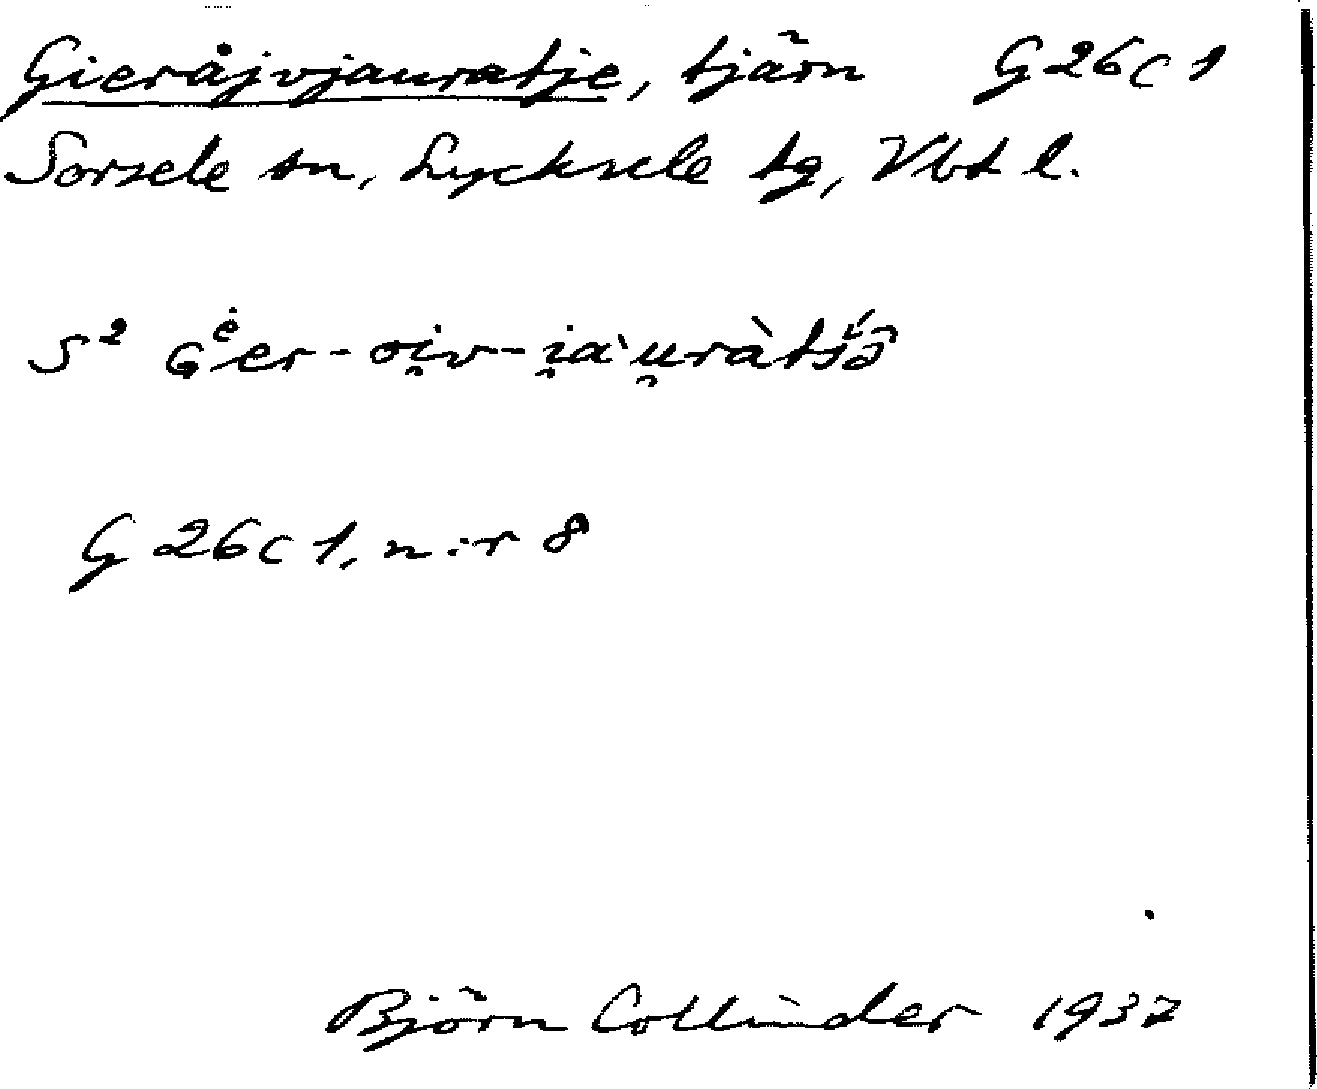 Gieråjvjauratje, tjärn G26c1
Sorsele sn, Lycksele tg, Vbt l.
S²
G 26c 1, n:r 8
Björn Collinder 1937